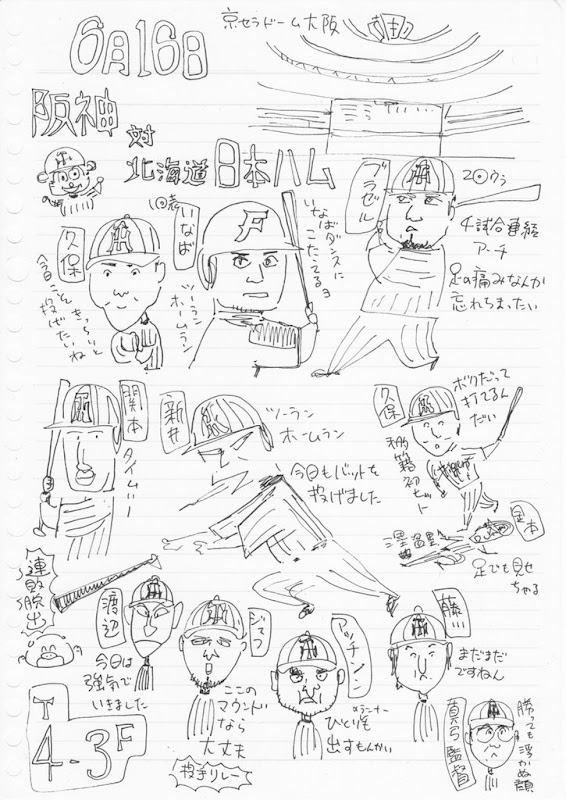 京セラドーム大阪
6月16日
阪神
対
北海道
日本ハム
久保
今日こそ
きっちりと
投げたいね
いなば
ツーラン
ホームラン
いなばダンスに
こたえてるヨ
F
ブラゼル
20ゥら
4試合連続
アーチ
足の痛みなんか
忘れちまったい
関本
タイムリー
新井
ツーラン
ホームラン
今日もバットを
投げました
久保
移籍初ヒット
ボクだって
打てるん
だい
足でも見せ
ちゃる
連敗脱出
渡辺
今日は
強気で
いきました
ジェフ
ここの
マウンド
なら
大丈夫
投手リレー
アッチソン
ランナー
ひとりも
出すもんかい
藤川
まだまだ
ですねん
真弓監督
勝っても
浮かぬ顔
T
4-3
F